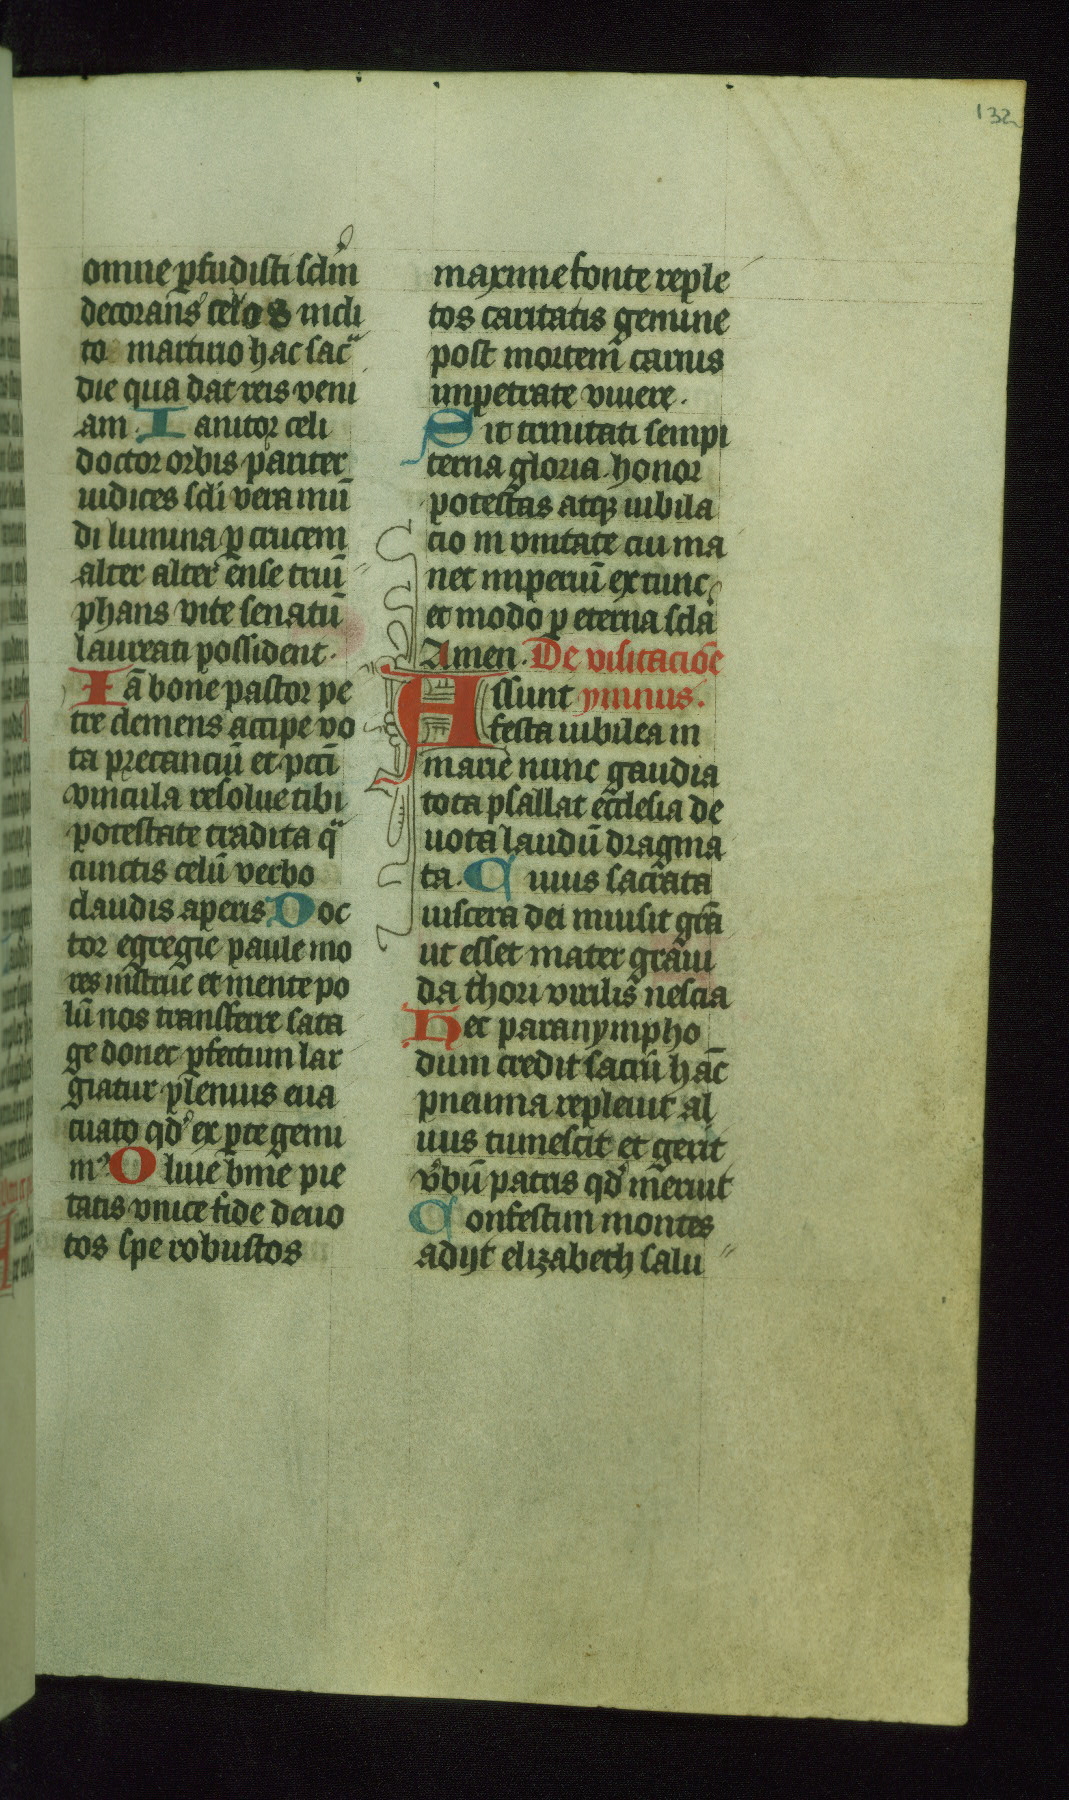 132
omne ꝑfudisti sclm̄
decorans celos incli
to martirio hac sac̈
die qua dat reis veni
am. Ianitor celi
doctor orbis pariter
iudices scli vera mū
di lumina ꝑ crucem
alter alter ēnse triū
phans vite senatū
laureati possident.
Iā bone pastor pe
tre clemens accipe vo
ta precanciū et pctī
vincula resolue tibi
potestate tradita q̈
cunctis celū verbo
claudis aperis Doc
tor egregie paule mo
res instrue et mente po
lū nos transferre sata
ge donec ꝑfectum lar
giatur plenius eua
cuato qd ex ꝑte geri
mꝰ Oliue bine pie
tatis vnice fide deuo
tos spe robustos
maxime fonte reple
tos caritatis gemine
post mortem carnis
impetrate viuere.
Sit trinitati sempi
terna gloria honor
potestas atqꝫ iubila
cio in vnitate cui ma
net imperiū ex tunc
et modo ꝑ eterna scla
Amen. De visitacioē
Assunt ymnus.
festa iubilea in
marie nunc gaudia
tota psallat ecclesia de
uota laudū dragma
ta. Cuius sacrata
viscera dei inuisit grā
ut esset mater graui
da thori virilis nescia
Hec paranympho
dum credit sacrū hāc
pneuma repleuit al
uus tumescit et gerit
vbū patris qd meruit
Confestim montes
adijt elizabeth salu